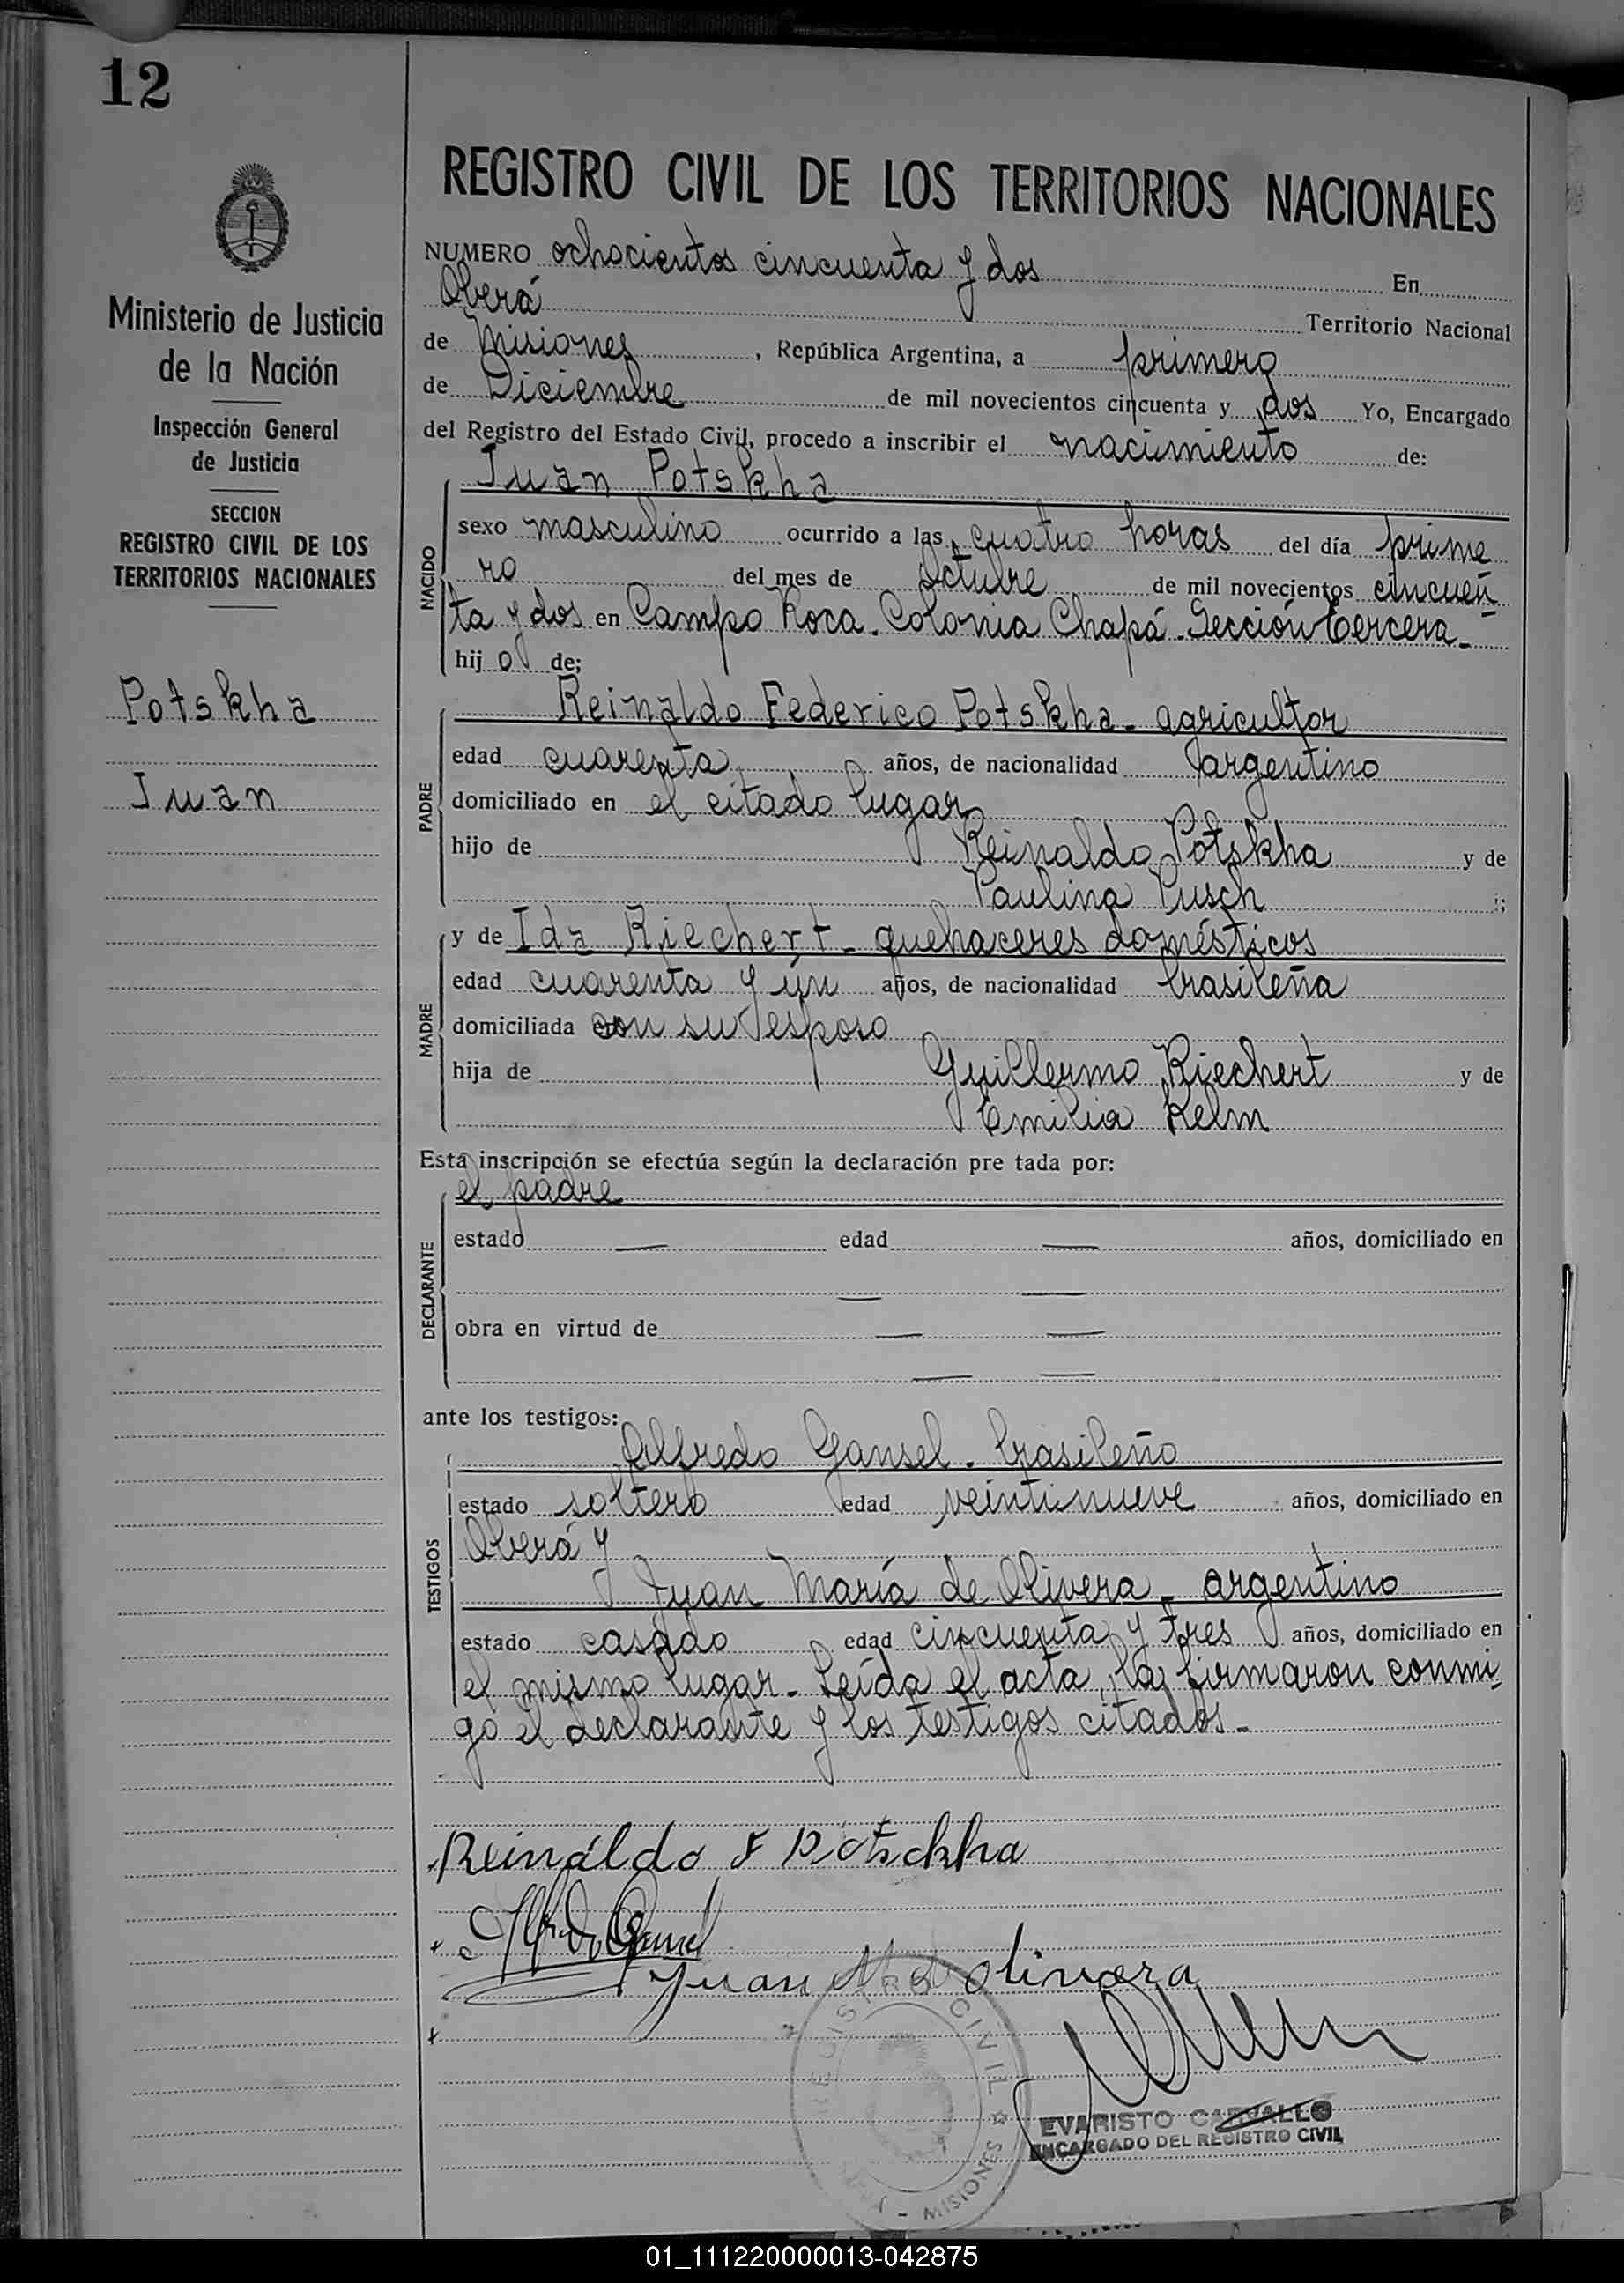 12
Ministerio de Justicia
de la Nación
Inspección General
de Justicia
SECCION
REGISTRO CIVIL DE LOS
TERRITORIOS NACIONALES
Potskha
Juan
REGISTRO CIVIL DE LOS TERRITORIOS NACIONALES
NUMERO ochocientos cincuenta y dos En
Oberá Territorio Nacional
de Misiones, República Argentina, a primero
de Diciembre de mil novecientos cincuenta y dos Yo, Encargado
del Registro del Estado Civil, procedo a inscribir el nacimiento de:
Juan Potskha
NACIDO
sexo masculino ocurrido a las cuatro horas del día prime
ro del mes de Octubre de mil novecientos cincuen
ta y dos en Campo Roca. Colonia Chapá. Sección tercera_
hijo de;
PADRE
Reinaldo Federico Potskha - agricultor
edad cuarenta años, de nacionalidad argentino
domiciliado en el citado lugar
hijo de Reinaldo Potskha y de
Paulina Pusch ;
MADRE
y de Ida Riechert - quehaceres domésticos
edad cuarenta y ún años, de nacionalidad brasileña
domiciliada con su esposo
hija de Guillermo Riechert y de
Emilia Relm
Esta inscripción se efectúa según la declaración pre tada por:
el padre
DECLARANTE
estado — edad — años, domiciliado en
— —
obra en virtud de — —
— —
ante los testigos:
TESTIGOS
Alfredo Gansel - brasileño
estado soltero edad veintinueve años, domiciliado en
Oberá y
Juan María de Olivera - argentino
estado casado edad cincuenta y tres años, domiciliado en
el mismo lugar - Leída el acta, la firmaron conmi
go el declarante y los testigos citados.-
Reinaldo F Potschka
Juan M de Olivera
REGISTRO CIVIL
MISIONES
EVARISTO CARVALLO
ENCARGADO DEL REGISTRO CIVIL
01_111220000013-042875